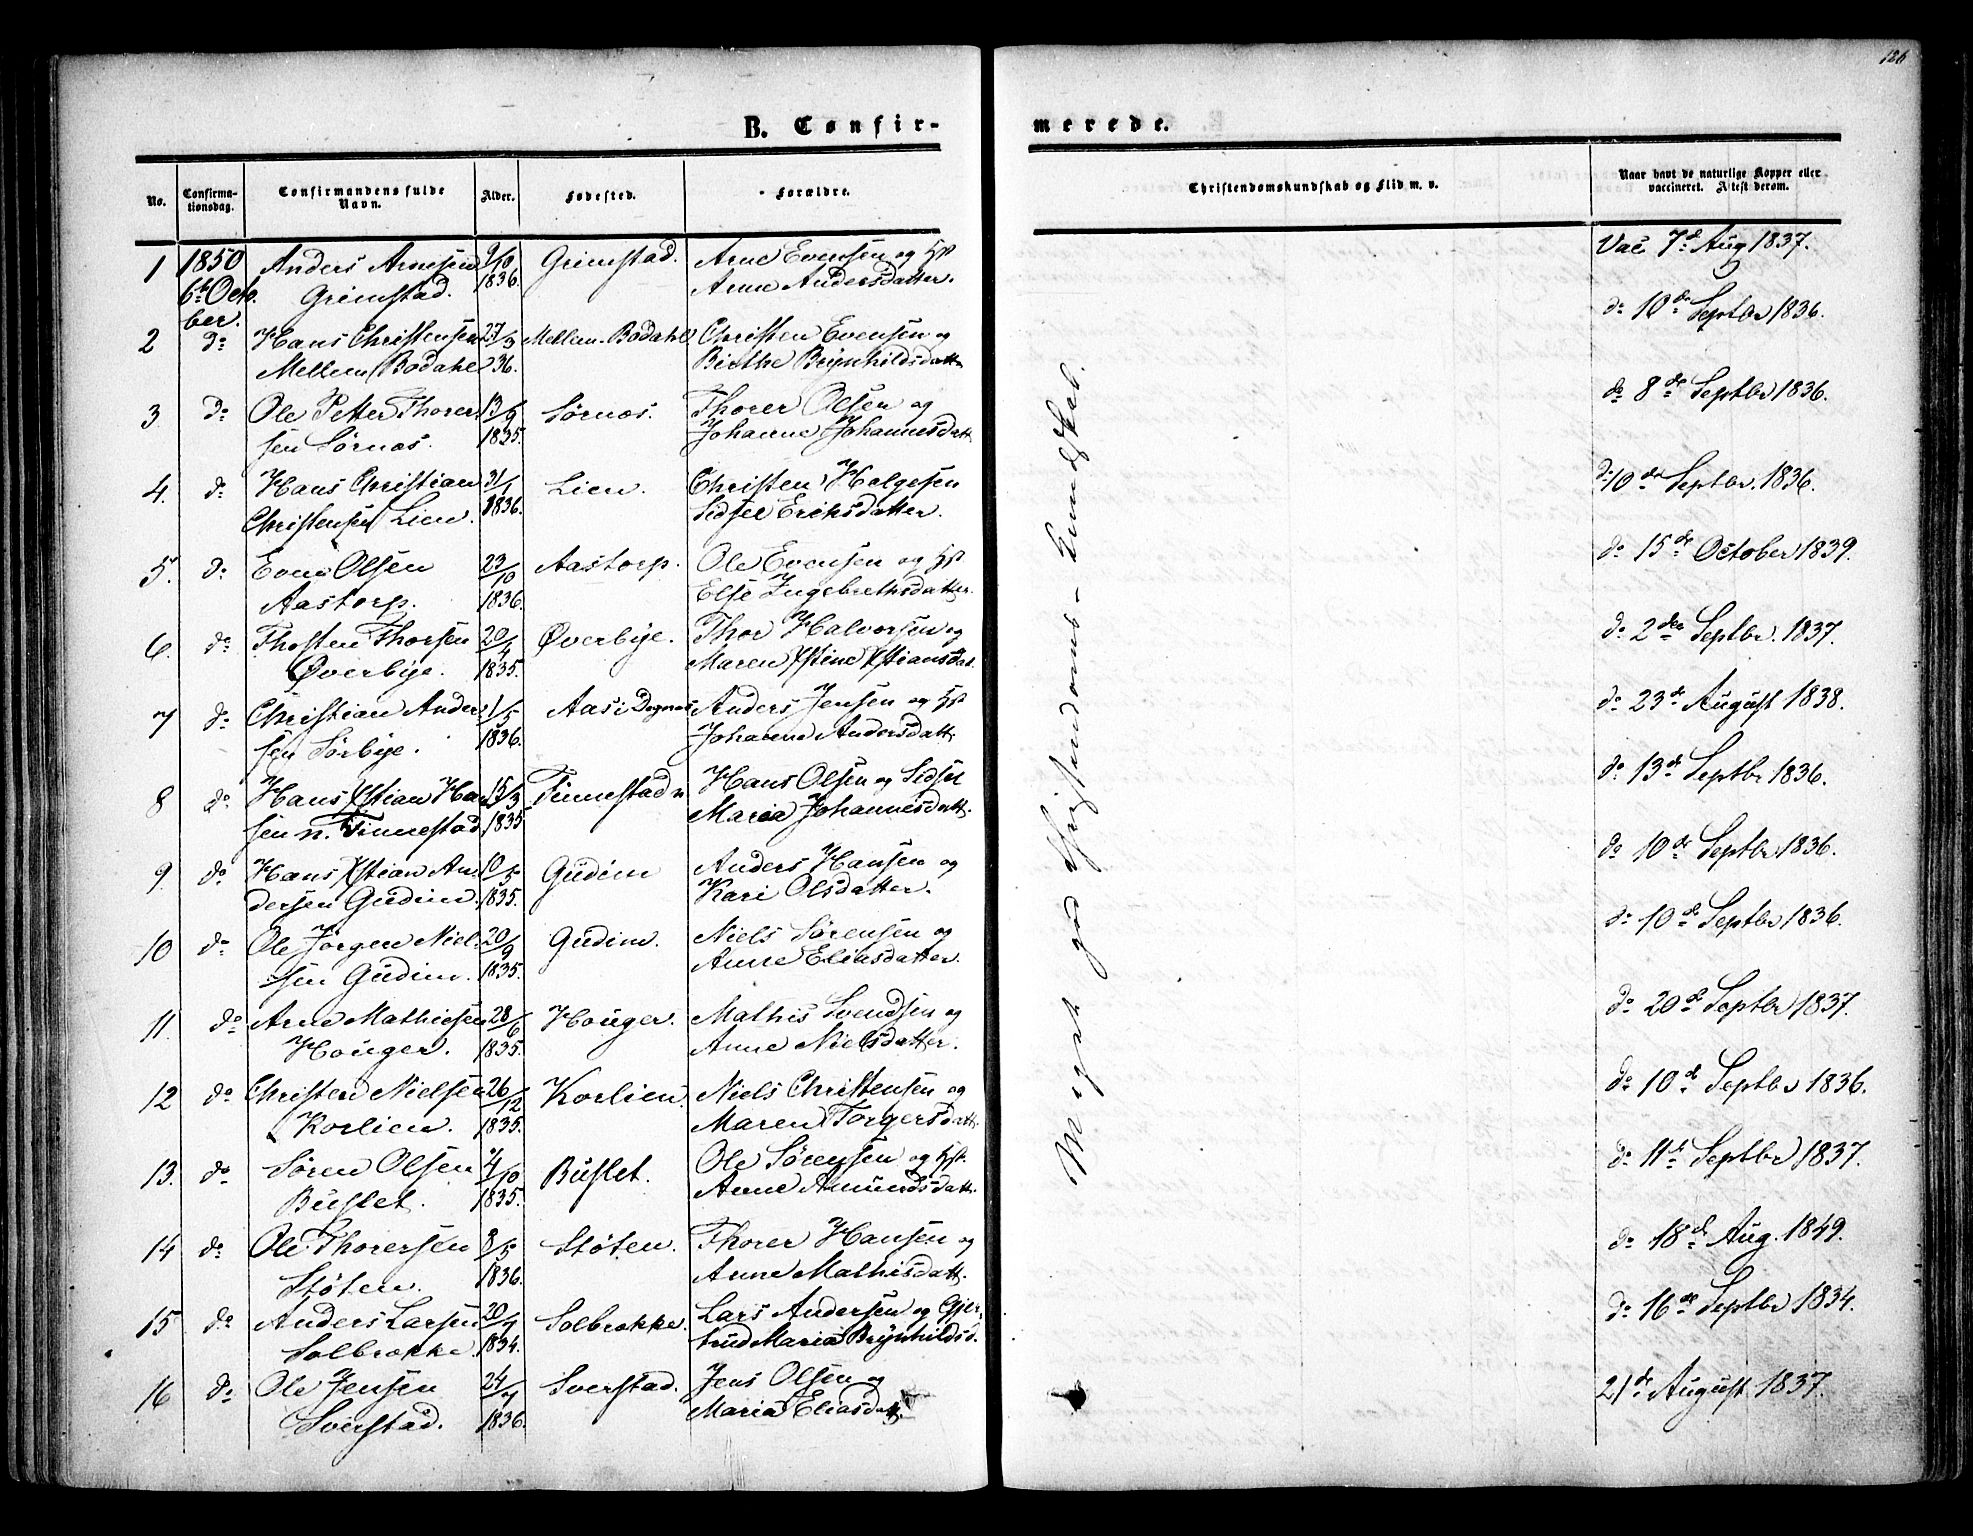 126
B. Confirmerede.
No.
Confirmationsdag.
Confirmandens fulde Navn.
Alder.
Fødested.
Forældre.
Christendomskundskab og Flid m. v.
Naar havt de naturlige Kopper eller vaccineret. Attest derom.
1 1850 Anders Arnesen 9/10 Grimstad. Arne Evensen og Hst Vac 7d Aug 1837.
6te Octo- Grimstad. 1836. Anne Andersdatter.
ber.
2 do Hans Christensen 27/3 Mellem-Bodahl Christen Evensen og do 10de Septbr 1836.
Mellem Bodahl 36. Birthe Brynhildsdatt
3 do Ole Petter Thorer- 13/9 Sørnæs. Thorer Olsen og do 8de Septbr 1836.
sen Sørnæs. 1835. Johanne Johannesdatt
4. do Hans Christian 31/1 Lien. Christen Helgesen do 10de Septbr. 1836.
Christensen Lien. 1836. Sidsel Eriksdatter.
5. do Even Olsen 23/10 Aastorp. Ole Evensen og Hst do 15de October 1839.
Aastorp. 1836. Else Ingebrethsdatter.
6. do Thosten Thorsen 20/4 Øverbye. Thor Halvorsen og do 2den Septbr. 1837.
Øverbye. 1835. Maren Xstine Xstiansdat.
7 do Christian Ander- 1/5 Aas i Degnes Anders Jensen og Hst do 23de August 1838.
sen Sørbye. 1836. Johanne Andersdatt.
8 do Hans Xstian Han- 15/3 Finnestad n Hans Olsen og Sidsel do 13de Septbr 1836.
sen n. Finnestad 1835 Maria Johannesdatt.
9. do Hans Xstian An- 10/5 Gudim Anders Hansen og do 10de Septbr 1836.
dersen Gudim. 1835. Kari Olsdatter.
10 do Ole Jørgen Niel- 20/9 Gudim. Niels Sørensen og do 10de Septbr 1836.
sen Gudim. 1835. Anne Eliasdatter.
11. do Arne Mathiesen 28/6 Houger. Mathis Svendsen og do 20de Septbr 1837.
Houger. 1835. Anne Nielsdatter.
12 do Christen Nielsen 26/12 Korlien. Niels Christensen og do 10de Septbr 1836.
Korlien. 1835. Maren Torgersdatt.
13. do Søren Olsen 4/10 Buslet. Ole Sørensen og Hst. do 11te Septbr 1837.
Buslet. 1835. Anne Amundsdatt.
14 do Ole Thorersen 8/5 Støten. Thorer Hansen og do 18de Aug. 1849.
Støten. 1836. Anne Mathisdatt.
15 do Anders Larsen 20/7 Solbrække. Lars Andersen og Gjer- do 16de Septbr 1834.
Solbrække. 1834. trud Maria Brynhildsd.
16 do Ole Jensen 24/7 Sverstad. Jens Olsen og 21de August 1837.
Sverstad. 1836. Maria Eliasdatt.
Meget god Christendoms-Kundskab.